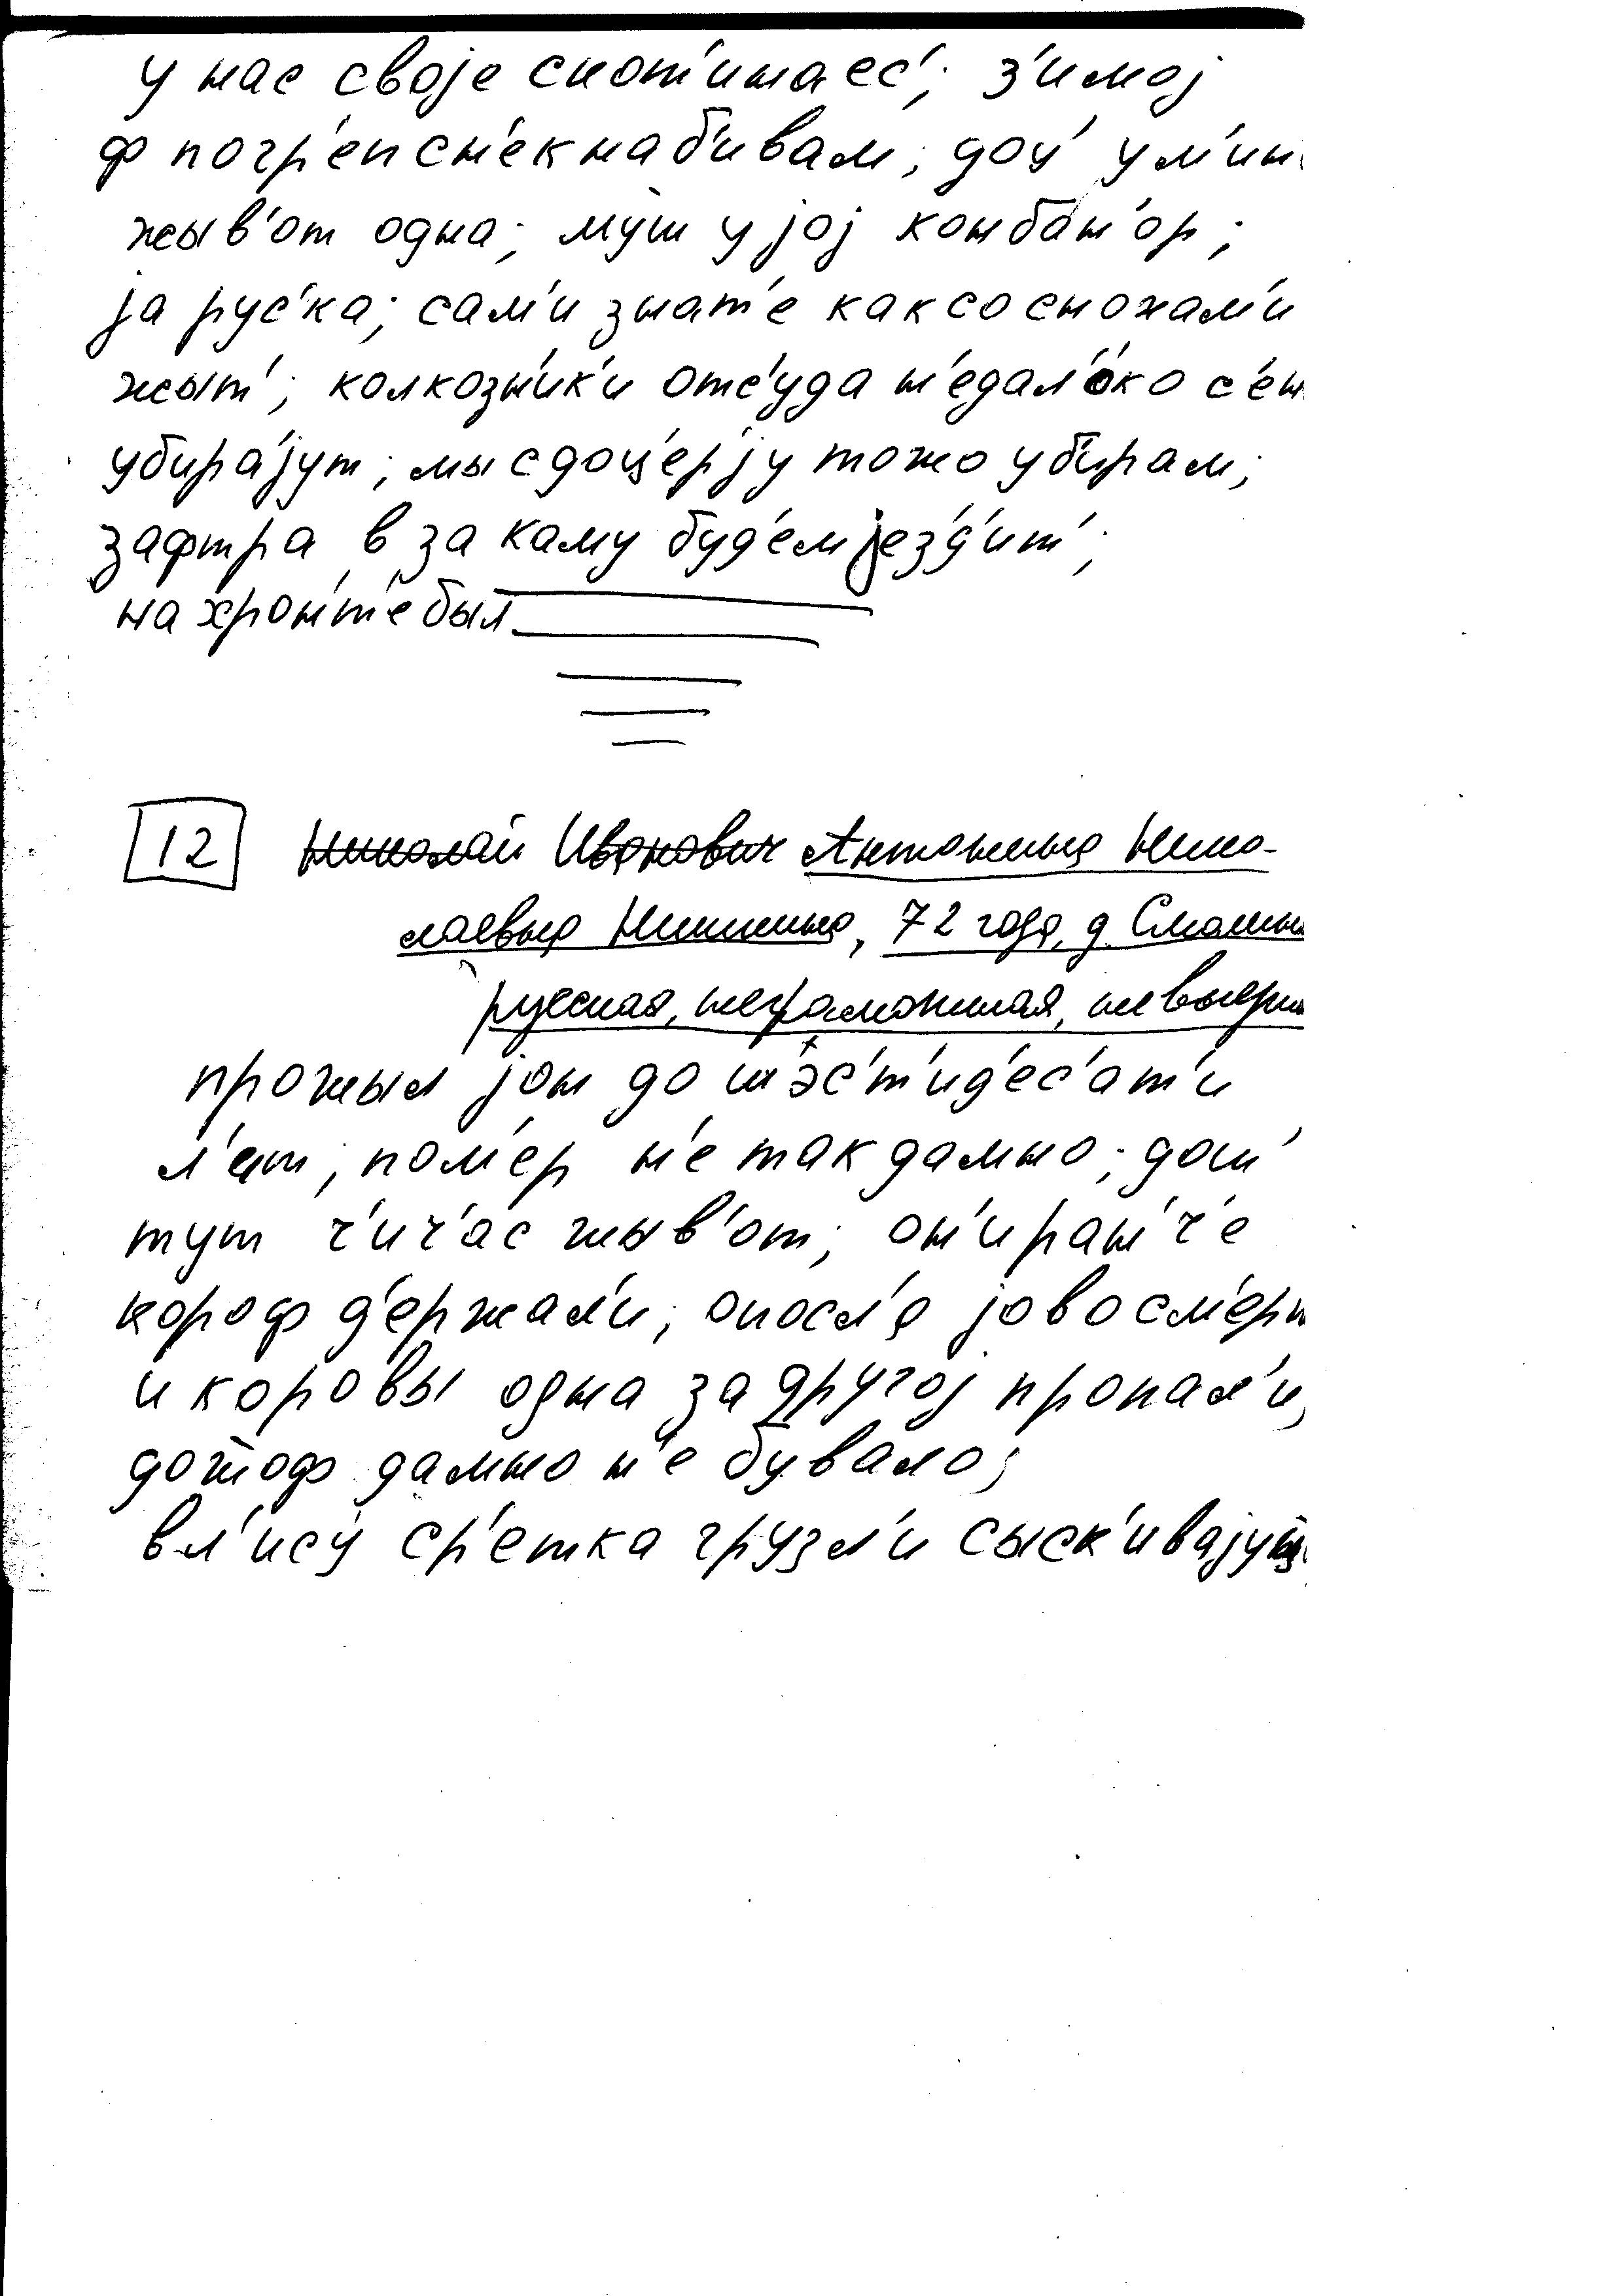 у нас своје скот'ина ес'; з'имој
ф погр'еп сн'ек наб'ивам; доч' у м'ин
жыв'от одна; муш у јој комбан'ор;
ја рус'ка; сам'и знат'е как со сножам'и
жыт'; колкозн'ик'и отс'уда н'едал'око с'ен
убирајут; мы с доц'ерју тожо убирам;
зафтра в за каму буд'ем јез'д'ит';
на хрон'т'е был
12 Николай Иванович Антонина Нико-
лаевна Никитина, 72 года, д.
русская, неграмотная, невыезрн
прожыл јон до шэс'т'ид'ес'ат'и
л'ет; пом'ер н'е так дамно; доч'
тут ч'ич'ас жыв'от; он'и ран'ч'е
короф д'ержал'и; опосл'а јово см'ерт
и коровы одна за другој пропал'и,
дожоф дамно н'е бувало;
в л'ису ср'етка грузл'и сыск'ивајуц